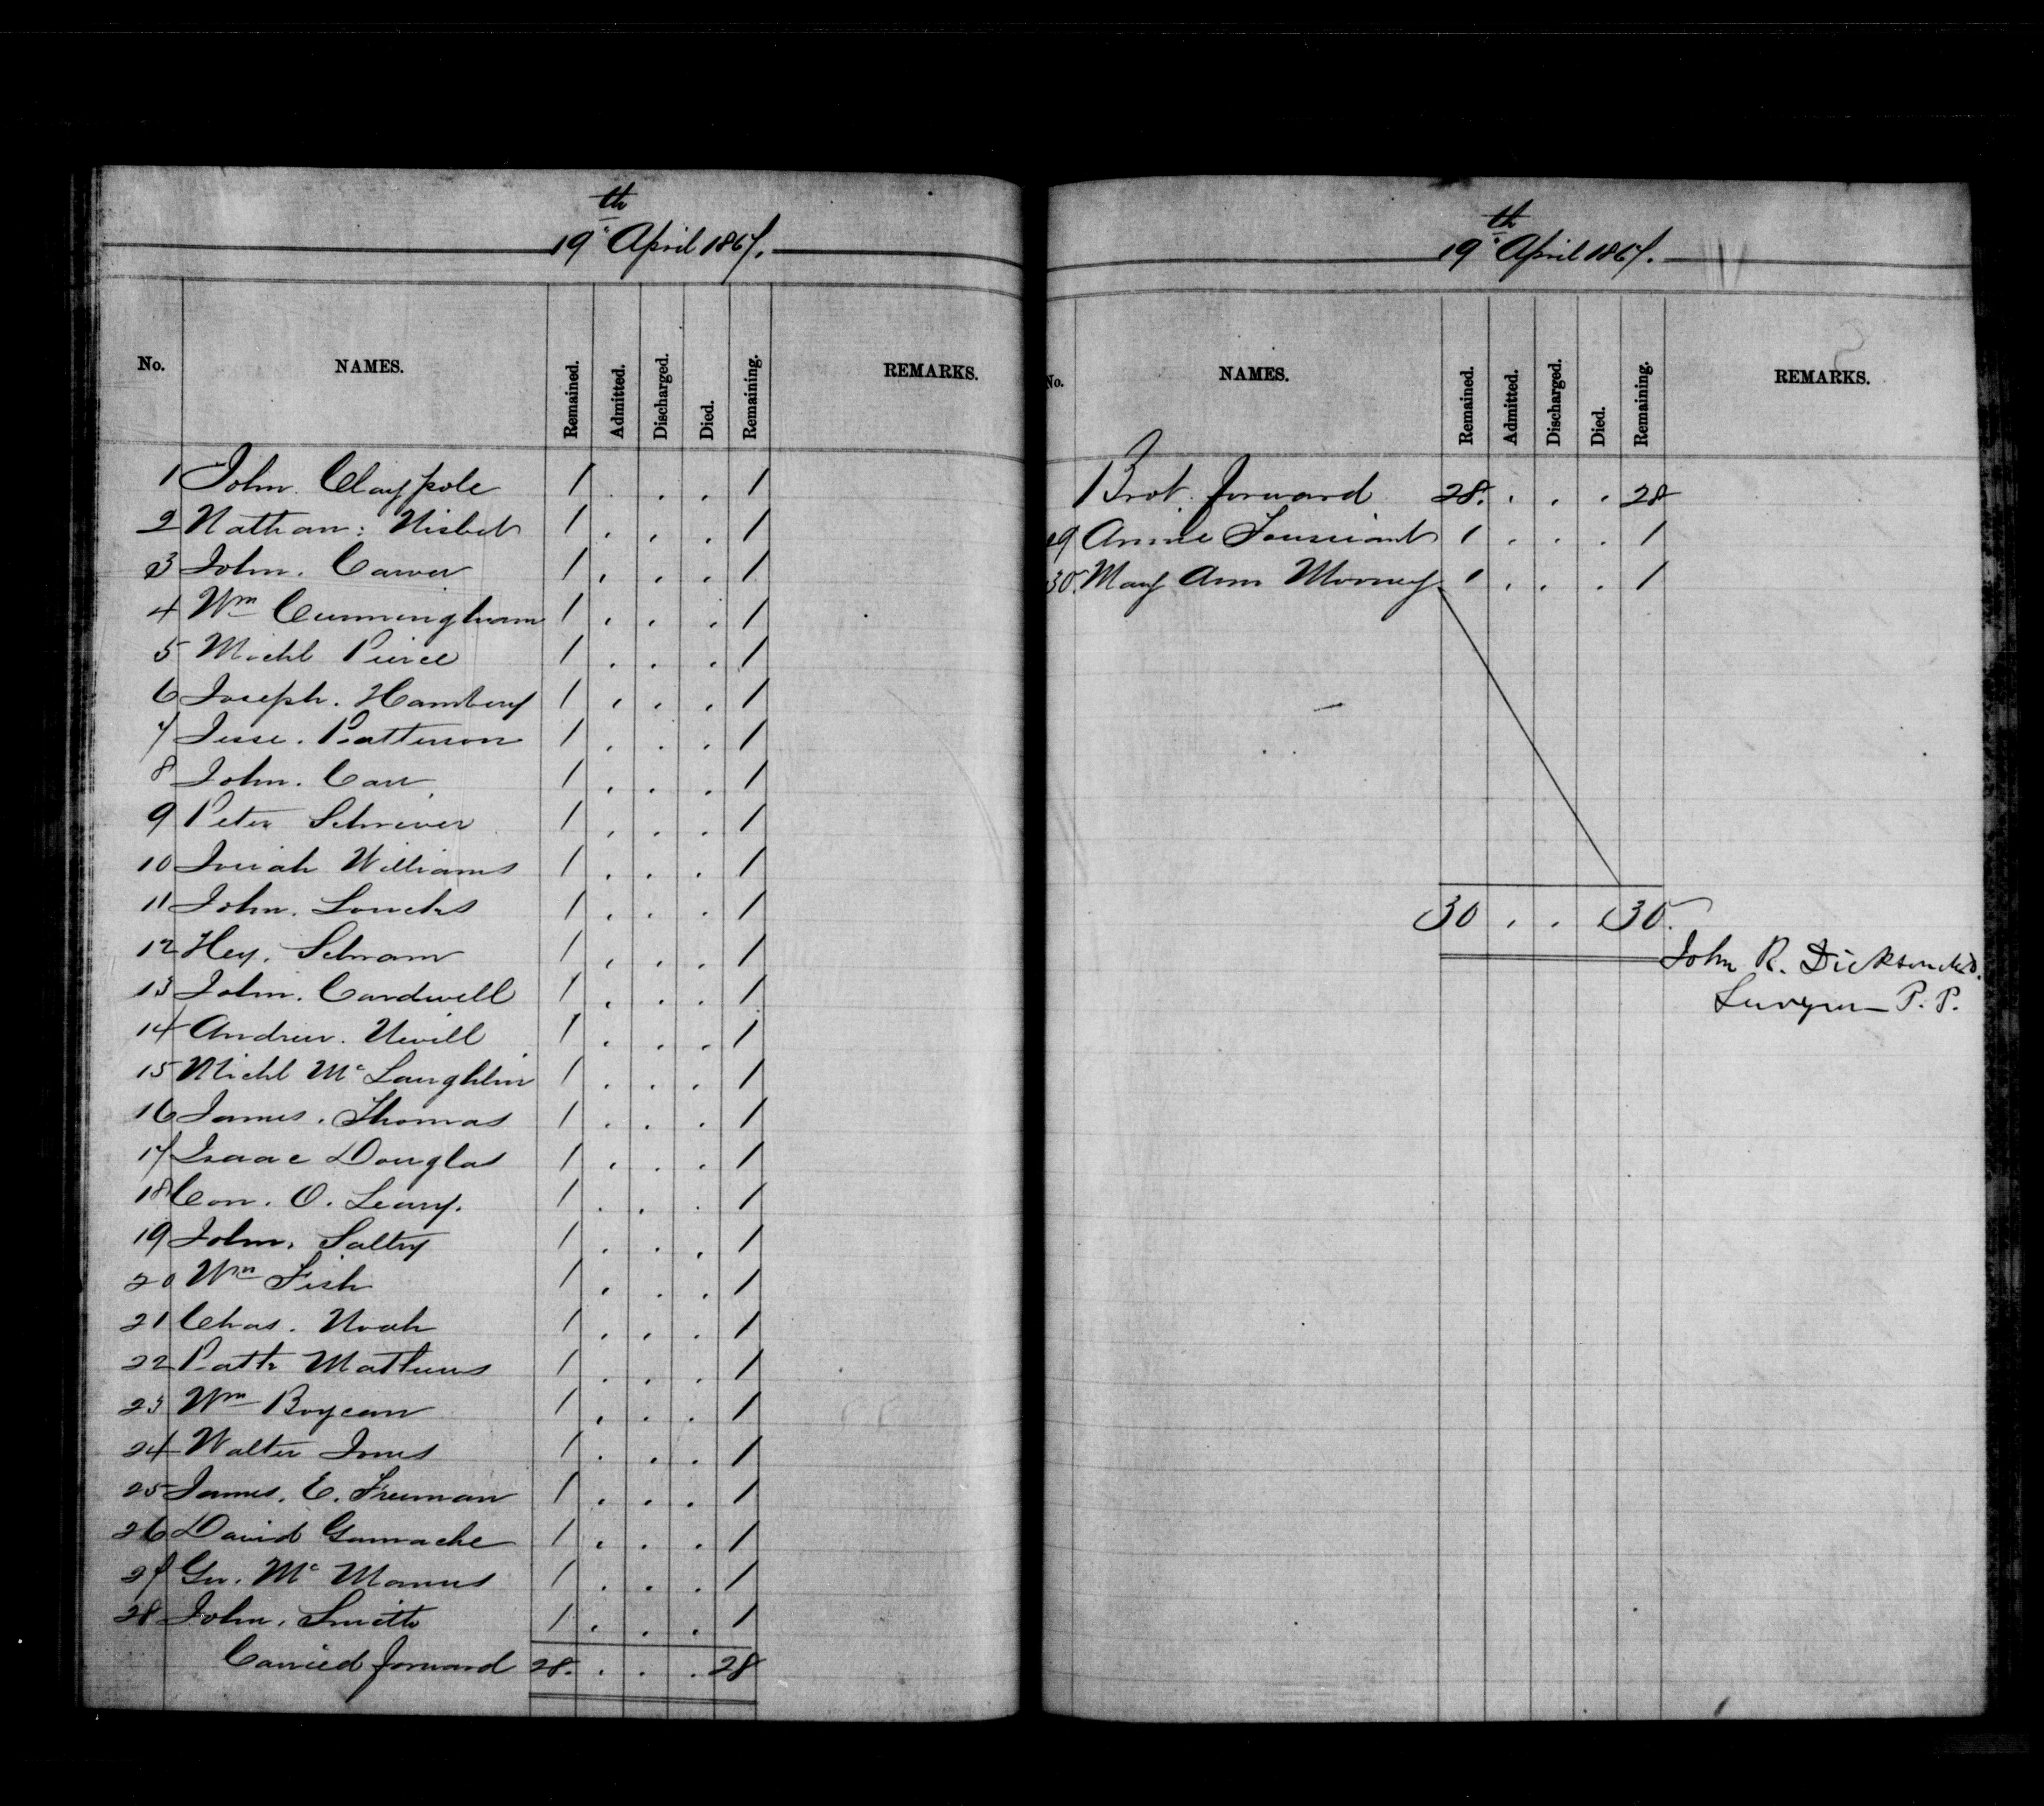 19th April 1867.
No. NAMES. Remained. Admitted. Discharged. Died. Remaining. REMARKS.
1 John. Claypole 1 . . . 1
2 Nathan: Nisbet 1 . . . 1
3 John. Carver 1 . . . 1
4 Wm Cunningham 1 . . . 1
5 Michl Pierce 1 . . . 1
6 Joseph. Hambery 1 . . . 1
7 Jesse. Patterson 1 . . . 1
8 John. Carr 1 . . . 1
9 Peter Schriver 1 . . . 1
10 Josiah Williams 1 . . . 1
11 John. Loucks 1 . . . 1
12 Hey. Schram 1 . . . 1
13 John. Cardwell 1 . . . 1
14 Andrew. Nevill 1 . . . 1
15 Michl McLaughlin 1 . . . 1
16 James. Thomas 1 . . . 1
17 Isaac Douglas 1 . . . 1
18 Con. O. Leary. 1 . . . 1
19 John. Saltry 1 . . . 1
20 Wm Fish 1 . . . 1
21 Chas. Noah 1 . . . 1
22 Patk Mathews 1 . . . 1
23 Wm Boycan 1 . . . 1
24 Walter 1 . . . 1
25 James. E. Freeman 1 . . . 1
26 David Gamache 1 . . . 1
27 Geo. McManus 1 . . . 1
28 John. Smith 1 . . . 1
Carried forward 28. . . . 28
19th April 1867.
No. NAMES. Remained. Admitted. Discharged. Died. Remaining. REMARKS.
Brot. forward 28. . . . 28
29 Annie Toussiant 1 . . . 1
30. Mary Ann Mooney 1 . . . 1
30 . . . 30.
John R. Dickson M.D.
Surgeon P. P.